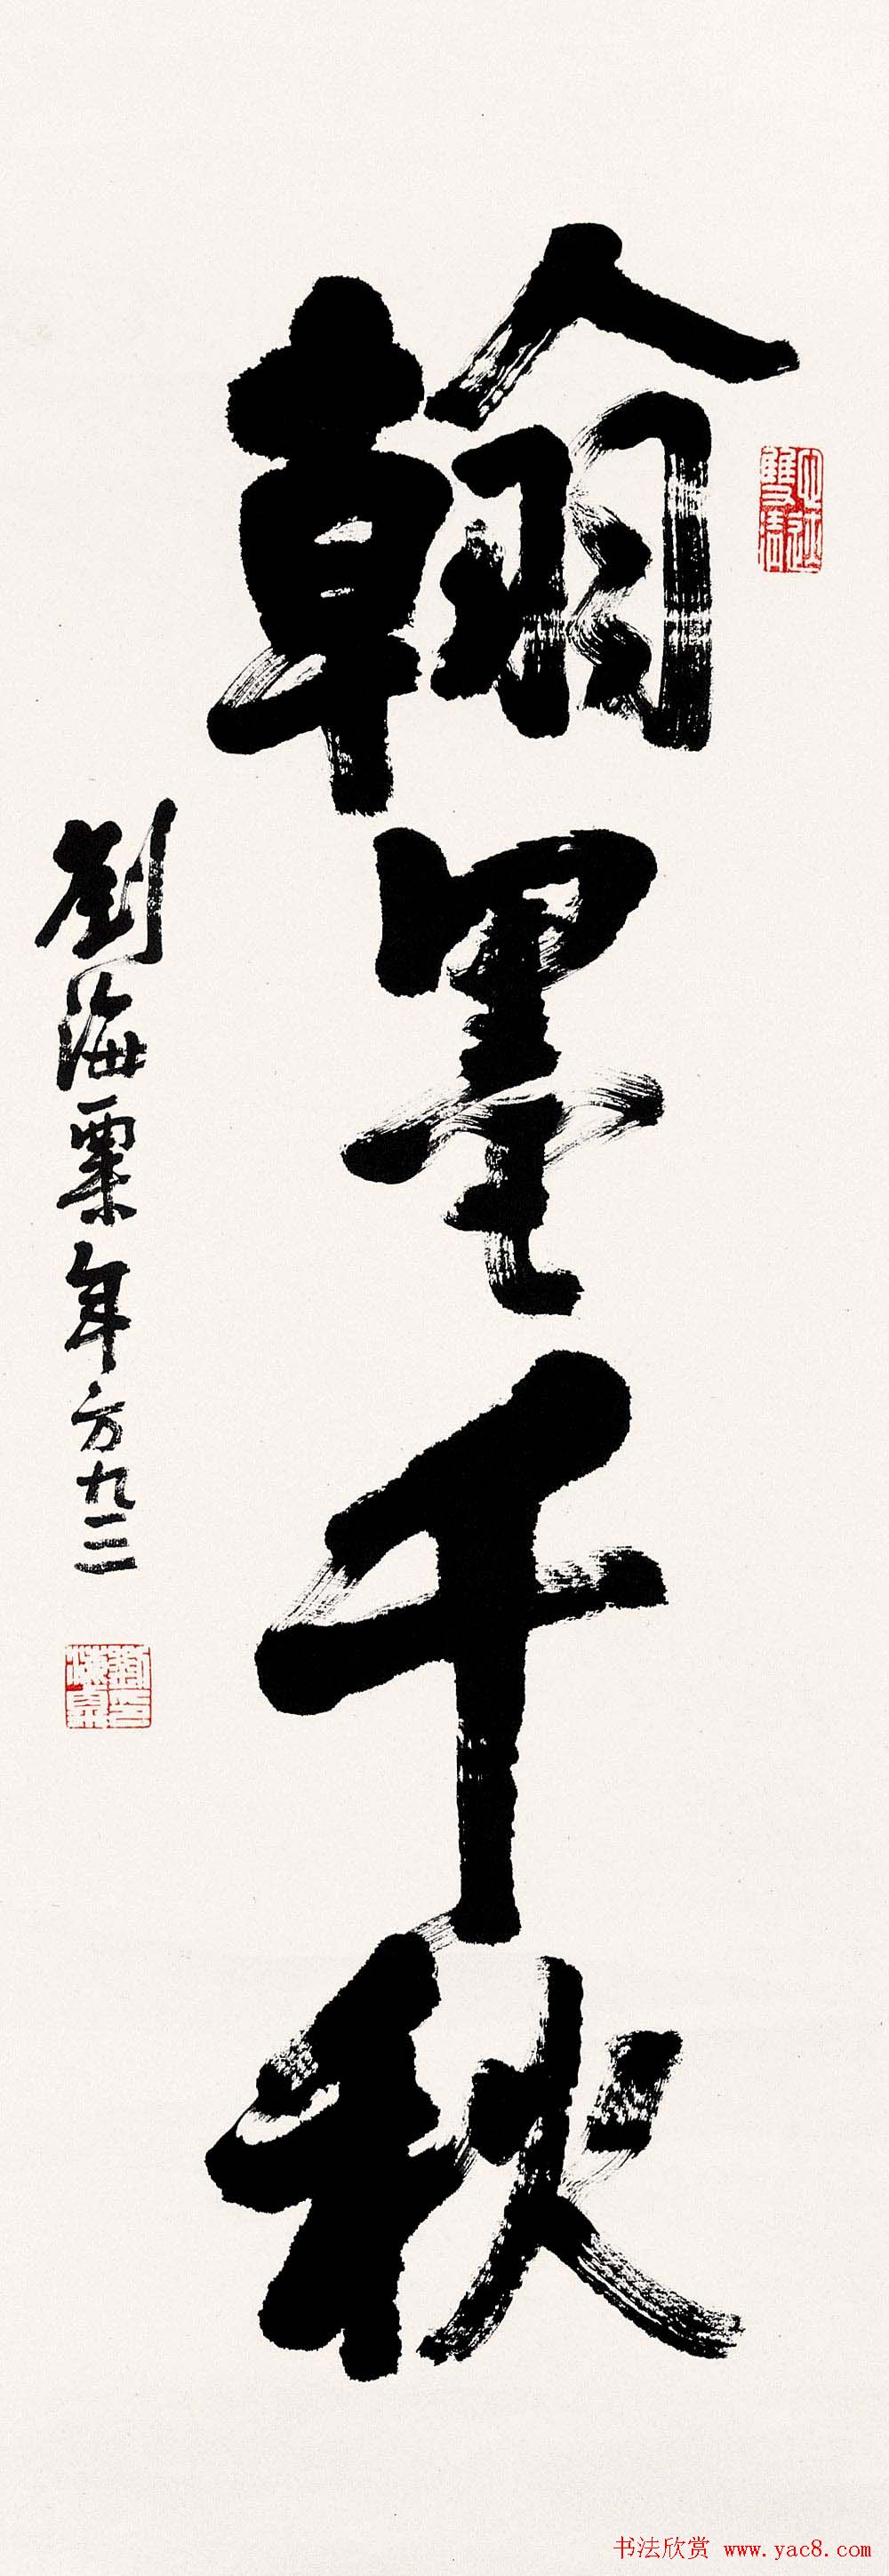 翰墨千秋
劉海粟年方九三
书法欣赏 www.yac8.com